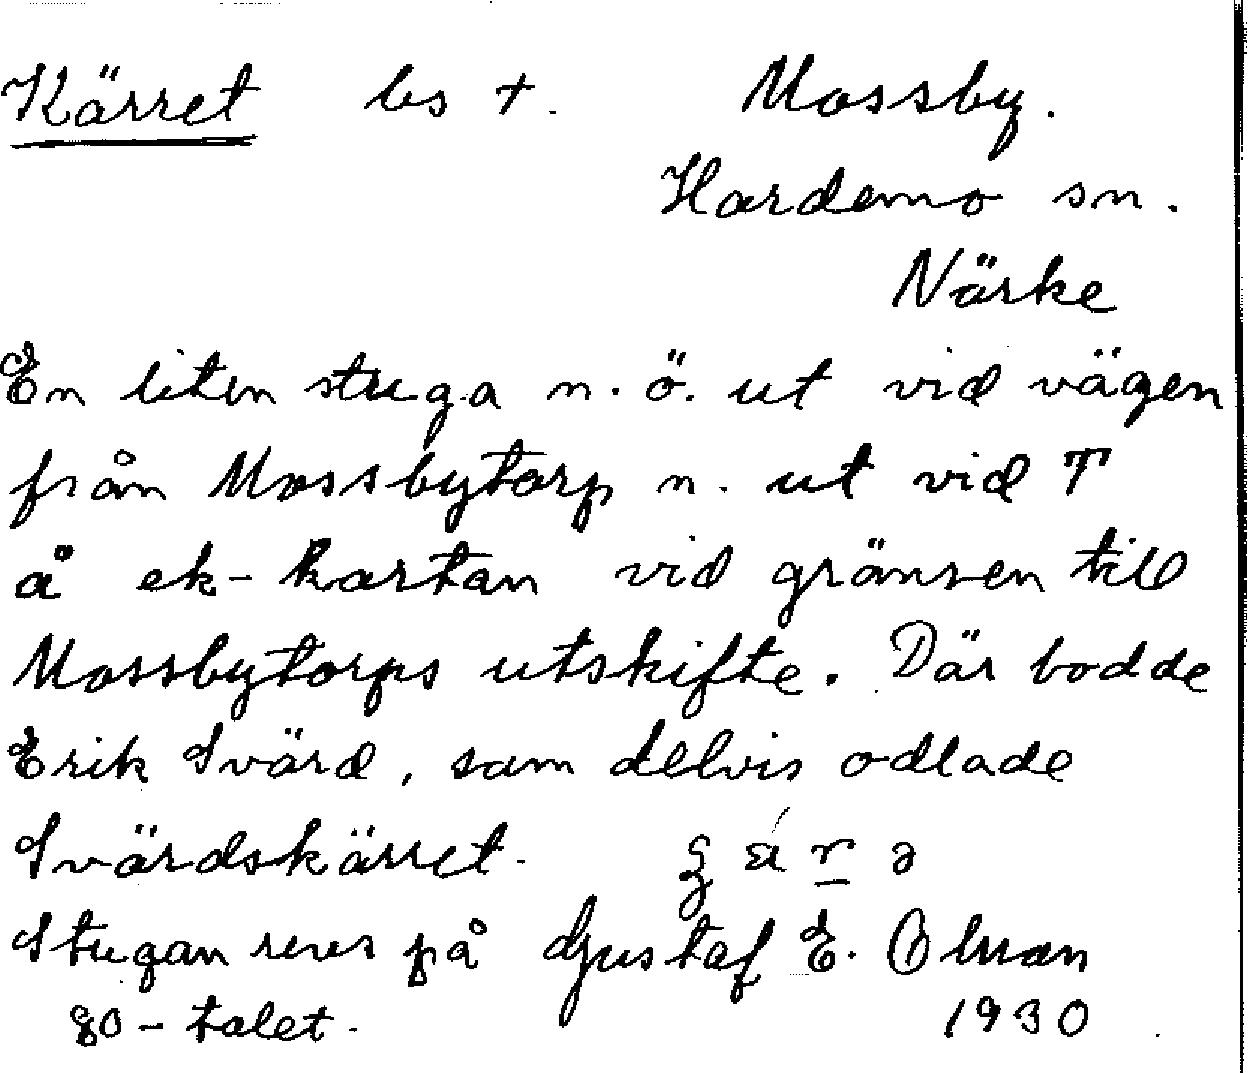 Kärret ls +. Mossby.
Hardemo sn.
Närke
En liten stuga n.ö. ut vid vägen
från Mossbytorp n. ut vid T
å ek-kartan vid gränsen till
Mossbytorps utskifte. Där bodde
Erik Svärd, som delvis odlade
Svärdskärret.
Stugan revs på Gustaf E. Olman
80-talet. 1930